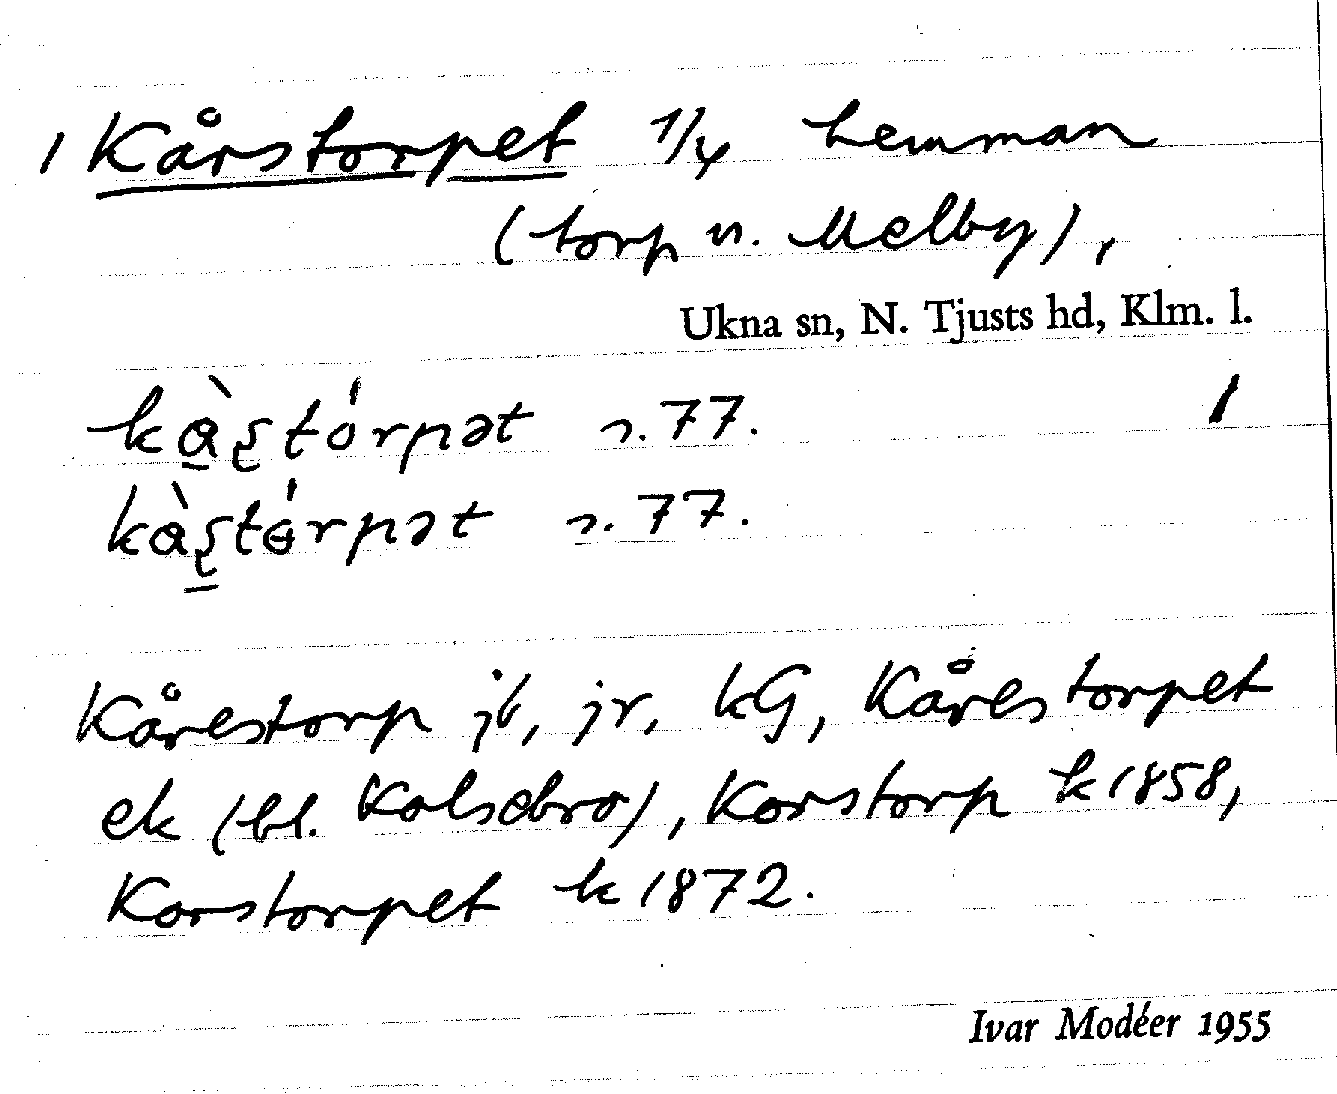 1 Kårstorpet 1/4 hemman
(torp u. Melby),
Ukna sn, N. Tjusts hd, Klm. l.
kàʂtórpət s. 77. 1
kàʂtórpət s. 77.
Kårestorp jb, jr, kG, Kårestorpet
ek (bl. Kolsebro), Korstorp k 1858,
Korstorpet k 1872.
Ivar Modéer 1955